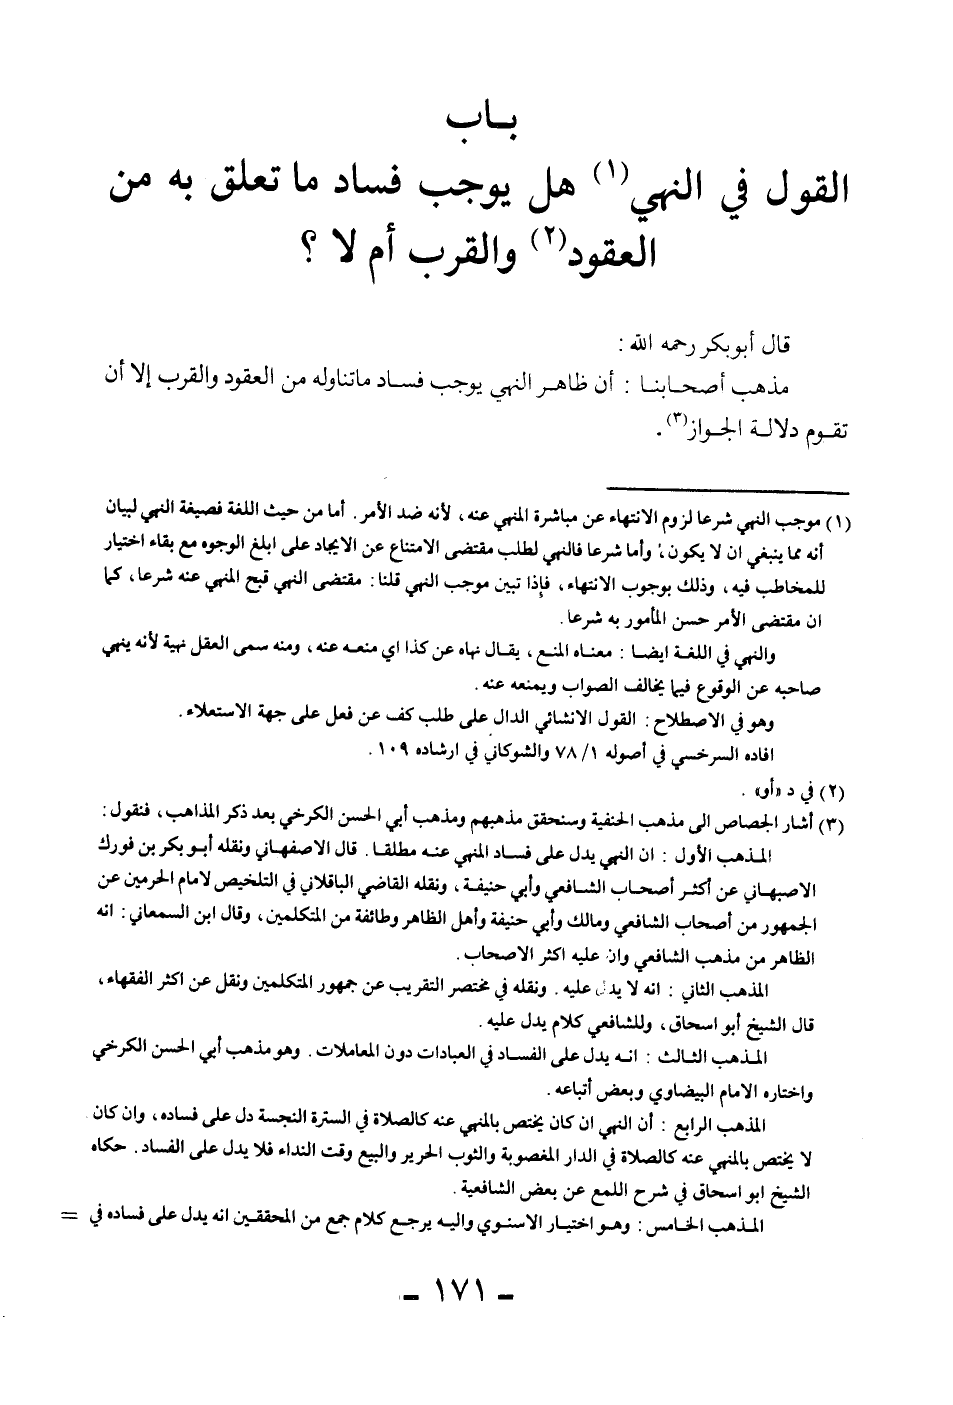 باب
القول في النهي(١) هل يوجب فساد ما تعلق به من
العقود(٢) والقرب أم لا ؟
قال أبوبكر رحمه الله :
مذهب أصحابنا : أن ظاهر النهي يوجب فساد ماتناوله من العقود والقرب إلا أن
تقوم دلالة الجواز(٣) .
(١) موجب النهي شرعا لزوم الانتهاء عن مباشرة المنهي عنه ، لأنه ضد الأمر . أما من حيث اللغة فصيغة النهي لبيان
أنه مما ينبغي ان لا يكون ، وأما شرعا فالنهي لطلب مقتضى الامتناع عن الايجاد على ابلغ الوجوه مع بقاء اختيار
للمخاطب فيه ، وذلك بوجوب الانتهاء ، فإذا تبين موجب النهي قلنا : مقتضى النهي قبح المنهي عنه شرعا ، كما
ان مقتضى الأمر حسن المأمور به شرعا .
والنهي في اللغة ايضا : معناه المنع ، يقال نهاه عن كذا اي منعه عنه ، ومنه سمى العقل نهية لأنه ينهي
صاحبه عن الوقوع فيما يخالف الصواب ويمنعه عنه .
وهو في الاصطلاح : القول الانشائي الدال على طلب كف عن فعل على جهة الاستعلاء .
افاده السرخسي في أصوله ١/ ٧٨ والشوكاني في ارشاده ١٠٩ .
(٢) في د «أو» .
(٣) أشار الجصاص الى مذهب الحنفية وسنحقق مذهبهم ومذهب أبي الحسن الكرخي بعد ذكر المذاهب ، فنقول :
المذهب الأول : ان النهي يدل على فساد المنهي عنه مطلقا . قال الاصفهاني ونقله أبو بكر بن فورك
الاصبهاني عن أكثر أصحاب الشافعي وأبي حنيفة ، ونقله القاضي الباقلاني في التلخيص لامام الحرمين عن
الجمهور من أصحاب الشافعي ومالك وأبي حنيفة وأهل الظاهر وطائفة من المتكلمين ، وقال ابن السمعاني : انه
الظاهر من مذهب الشافعي وان عليه اكثر الاصحاب .
المذهب الثاني : انه لا يدل عليه . ونقله في مختصر التقريب عن جمهور المتكلمين ونقل عن اكثر الفقهاء ،
قال الشيخ أبو اسحاق ، وللشافعي كلام يدل عليه .
المذهب الثالث : انه يدل على الفساد في العبادات دون المعاملات . وهو مذهب أبي الحسن الكرخي
واختاره الامام البيضاوي وبعض أتباعه .
المذهب الرابع : أن النهي ان كان يختص بالمنهي عنه كالصلاة في السترة النجسة دل على فساده ، وان كان
لا يختص بالمنهي عنه كالصلاة في الدار المغصوبة والثوب الحرير والبيع وقت النداء فلا يدل على الفساد . حكاه
الشيخ ابو اسحاق في شرح اللمع عن بعض الشافعية .
المذهب الخامس : وهو اختيار الاسنوي واليه يرجع كلام جمع من المحققين انه يدل على فساده في =
- ١٧١ -